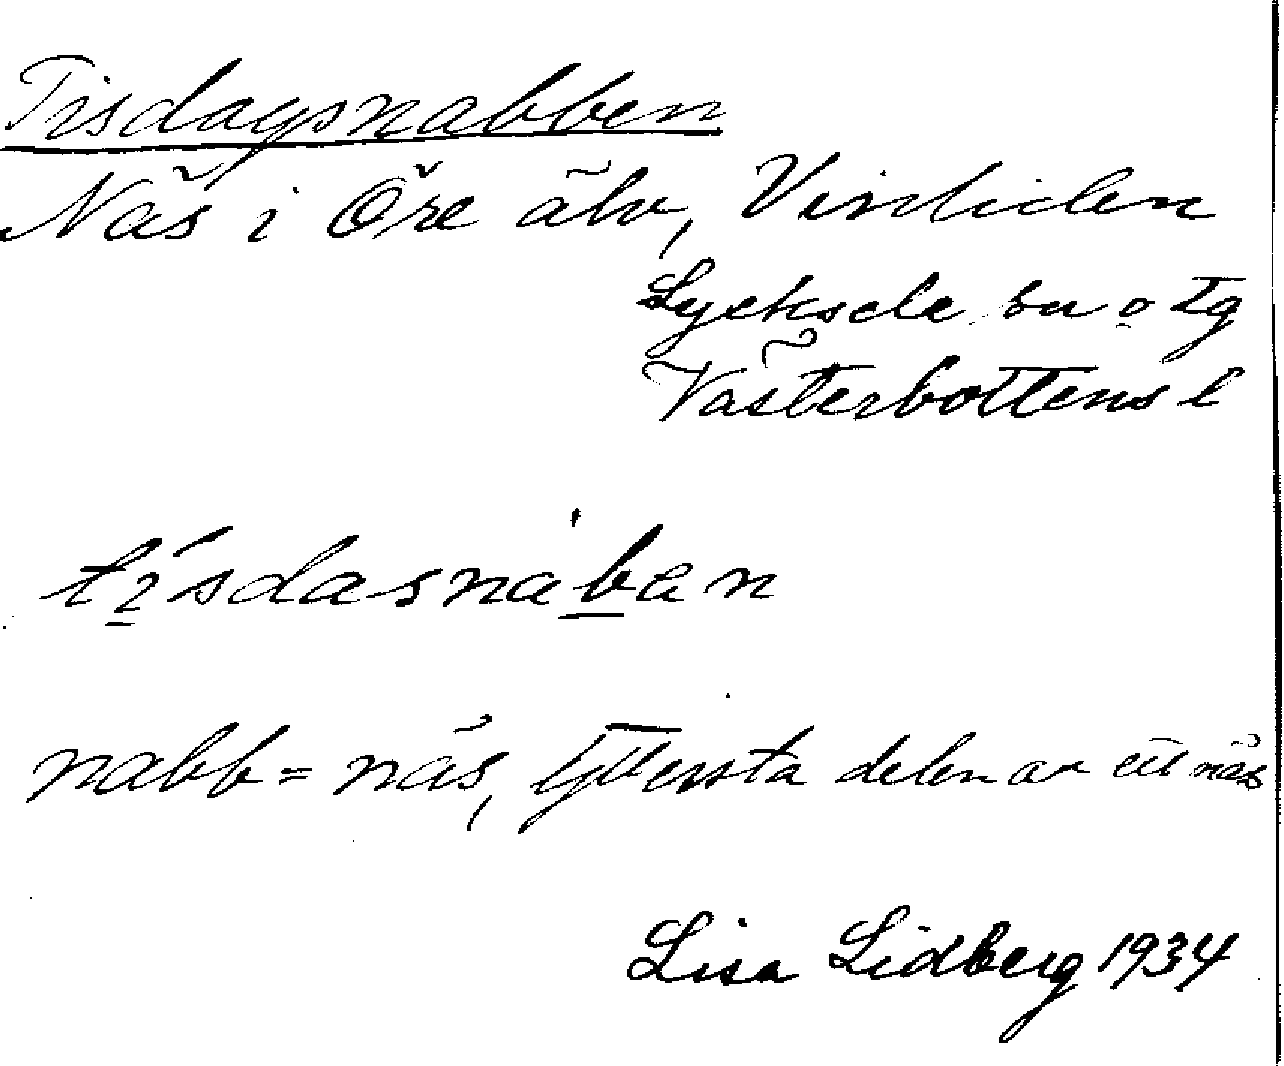 Tisdagsnabben
Näs i Öre älv, Vinliden
Lycksele sn o tg
Västerbottens l
tísdasnàban
nabb = näs, Yttersta delen av ett näs
Lisa Lidberg 1934